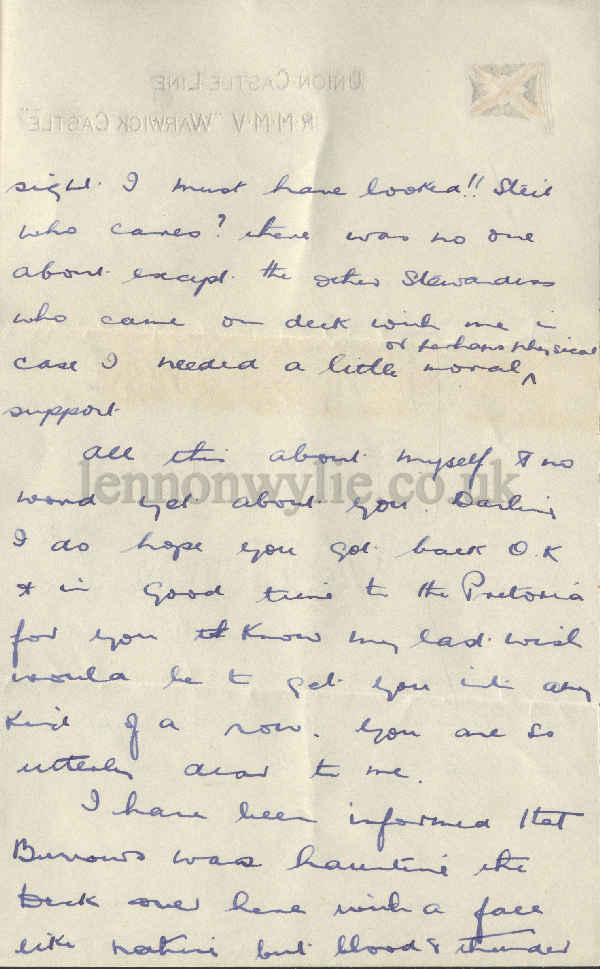 UNION-CASTLE LINE
R·M·M·V "WARWICK CASTLE"
sight. I must have looked!! Still
who cares? there was no one
about except the other Stewardess
who came on deck with me in
case I needed a little moral ^ or perhaps physical
support.
All this about myself & no
word yet about you. Darling
I do hope you got back O.K
& in good time to the Pretoria
for you know my last wish
would be to get you into any
kind of a row. You are so
utterly dear to me.
I have been informed that
Burrows was haunting the
Deck over here with a face
like nothing but blood & thunder
lennonwylie.co.uk